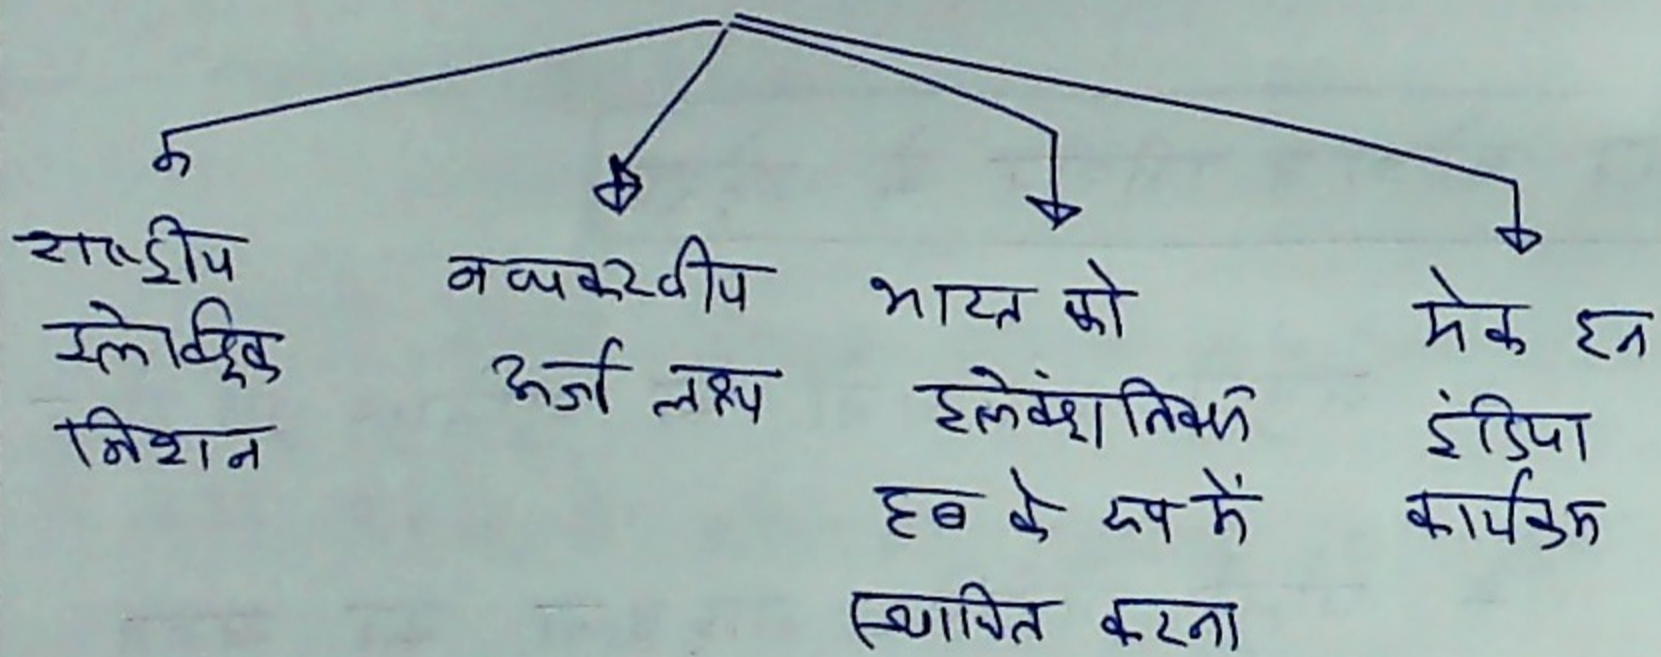 राष्ट्रीय
इलेक्ट्रिक
मिशन
नव्यकरणीय
ऊर्जा लक्ष्य
भारत को
इलेक्ट्रॉनिक्स
हब के रूप में
स्थापित करना
मेक इन
इंडिया
कार्यक्रम